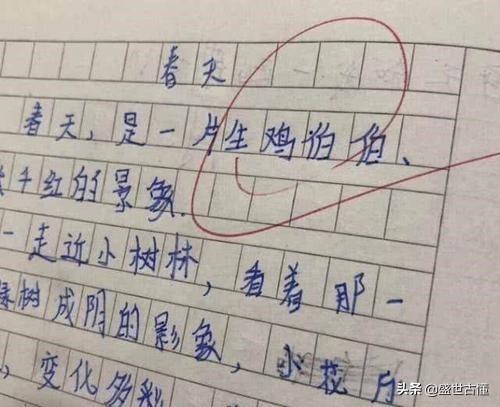 春天
春天,是一片生鸡伯伯、
千红的景象.
一走近小树林,看着那一
树成阴的影象,小花
,变化多彩
头条 @盛世古懂